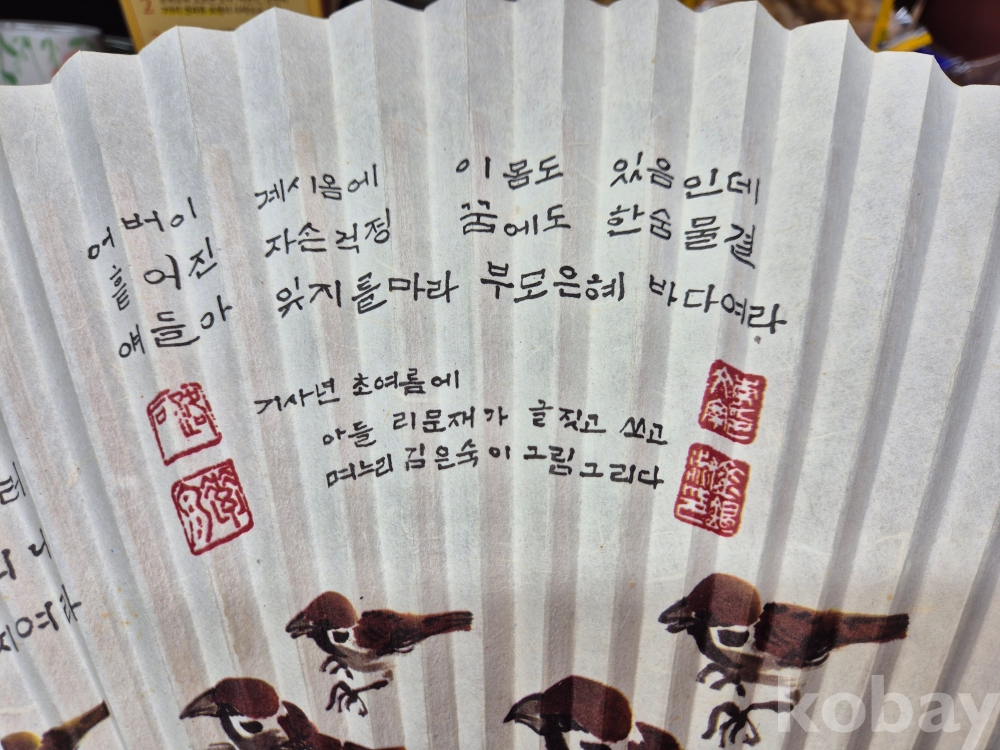 어버이 계시옴에 이 몸도 있음인데
흩어진 자손걱정 꿈에도 한숨물결
얘들아 잊지를마라 부모은혜 바다여라.
기사년 초여름에
아들 리문재가 글 짓고 쓰고
며느리 김은숙이 그림 그리다
kobay